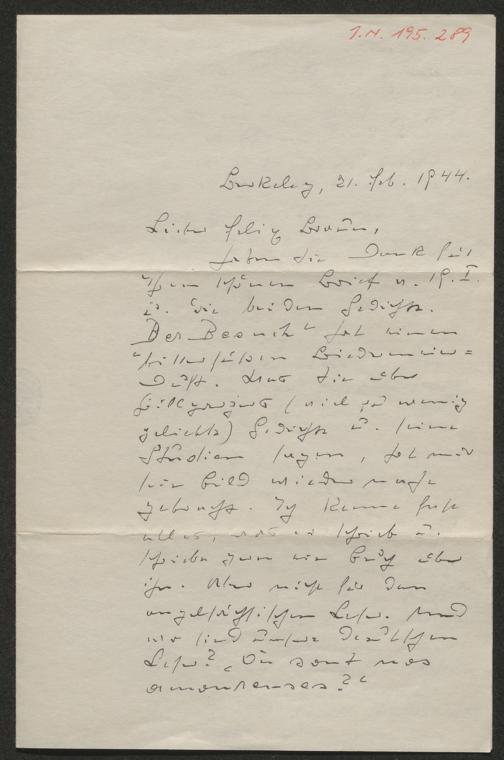 I.N. 195.289
Berkeley, 21. Feb. 1944.
Lieber Felix Braun,
haben Sie Dank für
Ihren schönen Brief v. 19. I.
u. die beiden Gedichte.
"Der Besuch" hat einen
Biedermeier=
Duft. Was Sie über
(viel zu wenig
geliebte) Gedichte u. seine
Studien sagen, hat mir
sein Bild wieder nahe
gebracht. Ich kenne fast
alles, was er schrieb u.
schriebe gern ein Buch über
ihn. Aber nicht für den
angelsächsischen Leser. Und
wo sind unsere deutschen
Leser? "Où sont nos
amoureuses?"